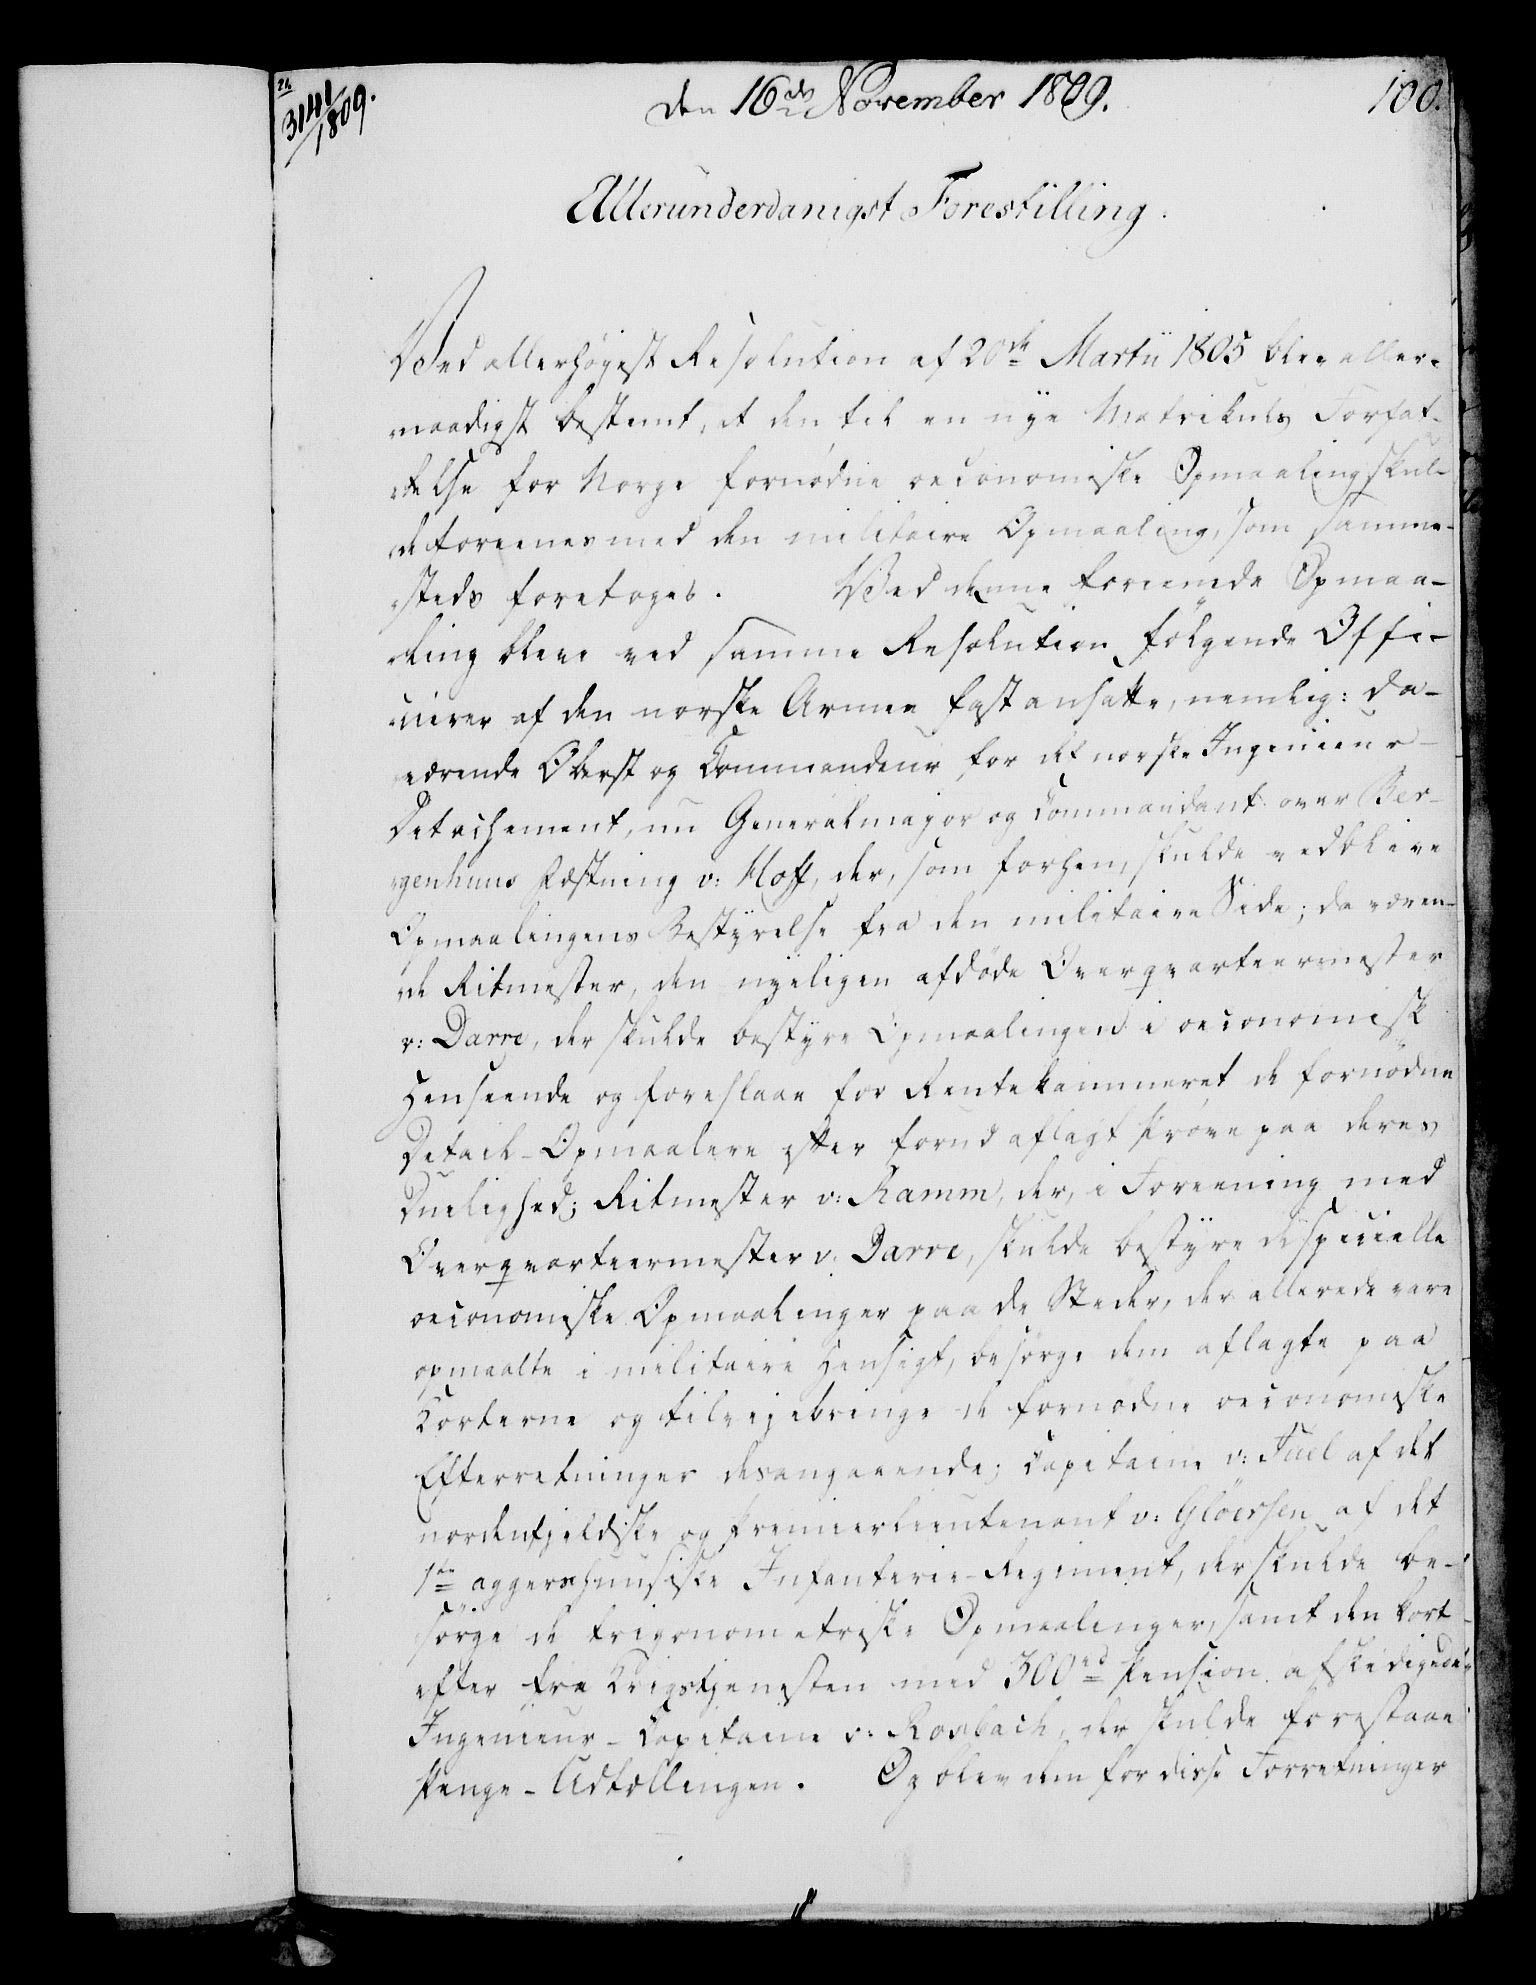 3141/1809.
den 16de November 1809.
100.
Allerunderdanigst Forestilling.
Ved allerhøyest Resolution af 20de Martii 1805 blev aller-
naadigst bestemt, at den til en nye Matrikuls Forfat-
telse for Norge fornødne oeconomiske Opmaaling skul-
de foreenes med den militaire Opmaaling, som samme-
steds foretoges. Ved denne foreenede Opmaa-
ling bleve ved samme Resolution følgende Offi-
cierer af den norske Armee fast ansatte, nemlig: da-
værende Oberst og Commandeur for det norske Ingenieur-
Detachement, nu Generalmajor og Commandant over Ber-
genhuus Fæstning v: Hoff, der, som forhen, skulde vedblive
Opmaalingens Bestyrelse fra den militaire Side; da væren-
de Ritmester, den nyeligen afdøde Overqvarteermester
v: Darre, der skulde bestyre Opmaalingen i oeconomisk
Henseende og foreslaae for Rentekammeret de fornødne
Detail-Opmaalere efter forud aflagt Prøve paa deres
Duelighed; Ritmester v: Ramm, der, i Foreening med
Overqvarteermester v. Darre, skulde bestyre de specielle
oeconomiske Opmaalinger paa de Steder, der allerede vare
opmaalte i militaire Hensigt, besørge dem aflagte paa
Korterne og tilvejebringe de fornødne oeconomiske
Efterretninger desangaaende; Capitaine v: Juel af det
nordenfjeldske og Premierlieutenant v: Glöersen af det
1ste aggershuusiske Infanterie-Regiment, der skulde be-
sørge de trigonometriske Opmaalinger, samt den kort
efter fra Krigstjenesten med 300rd Pension afskedigede
Ingenieur-Capitaine v: Rosbach, der skulde forestaae
Penge-Udtællingen. Og blev dem for disse Forretninger